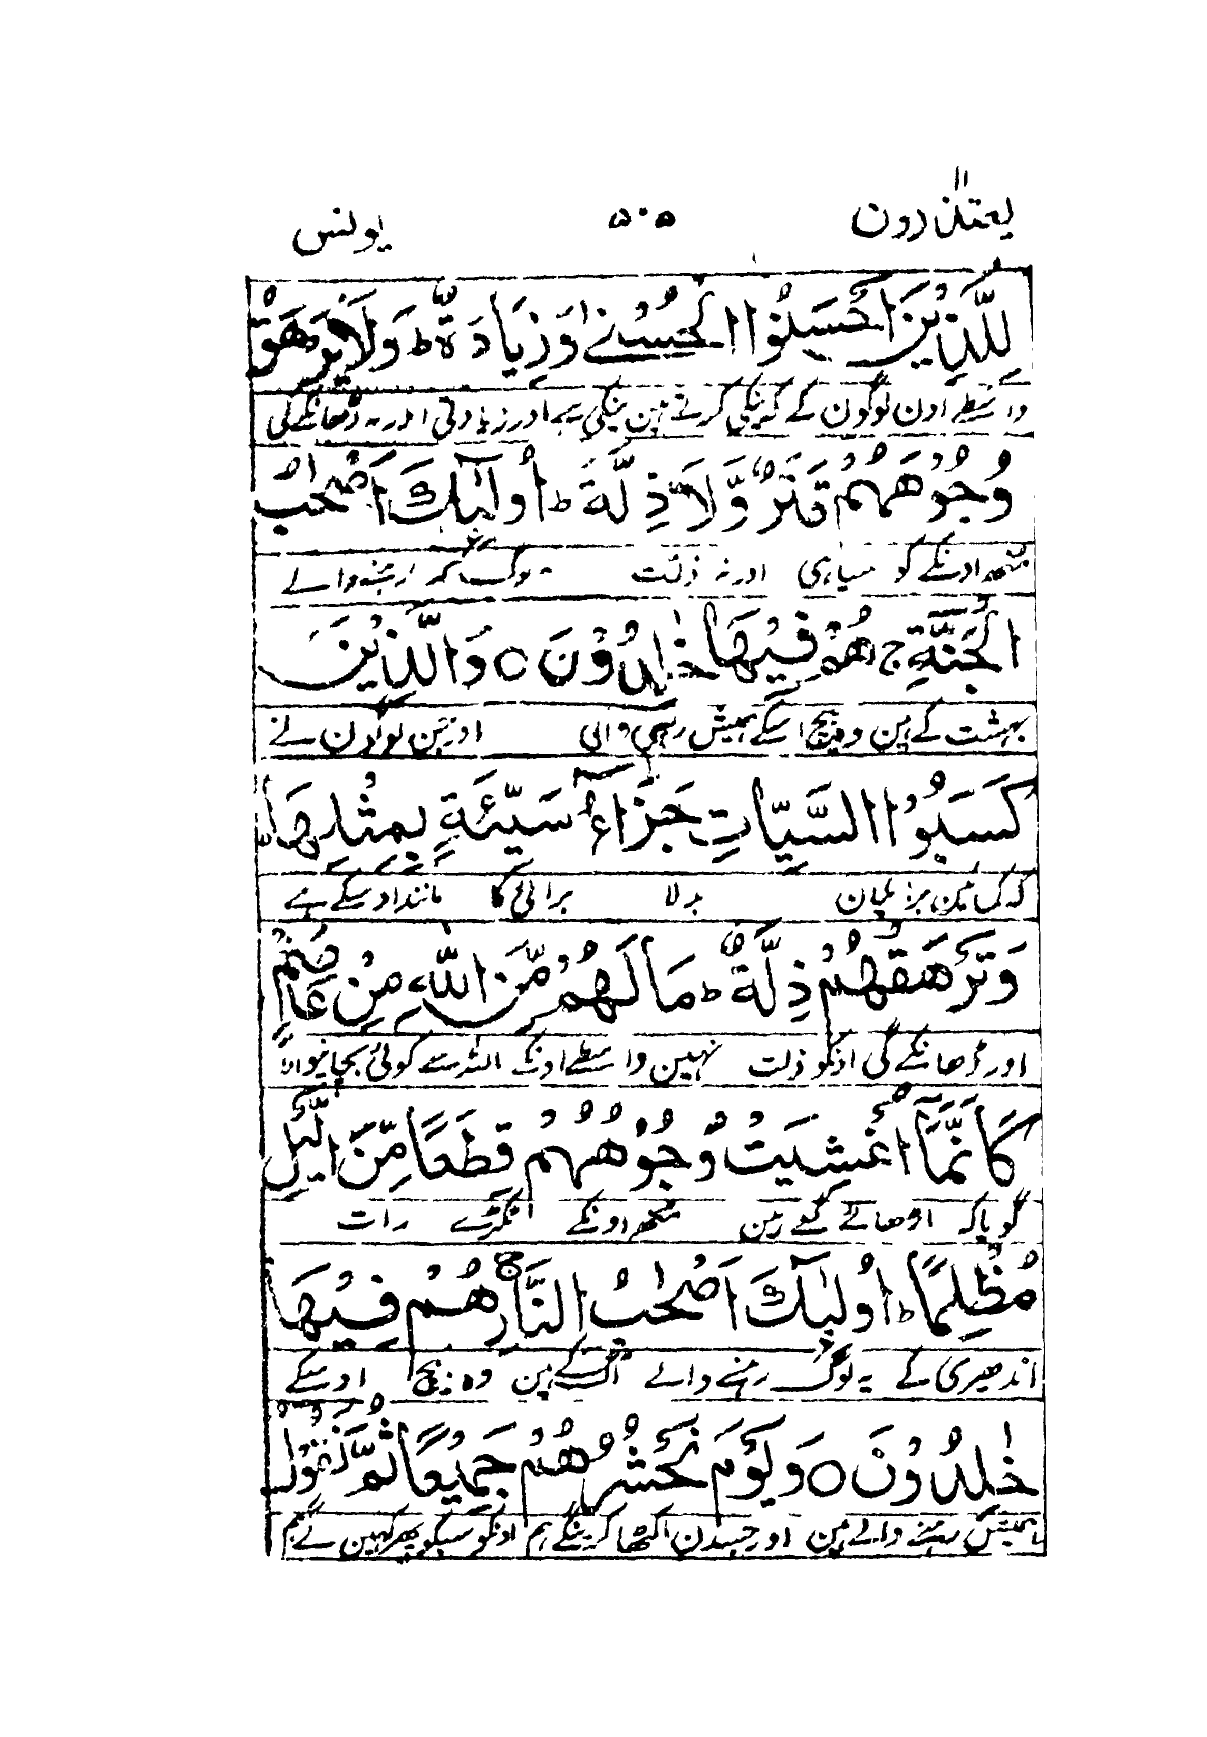 یعتذرون ۱۱ ۵۰۵ یونس
لِلَّذِیْنَ اَحْسَنُوا الْحُسْنٰے وَزِیَادَۃٌ ؕ وَلَا یَرْهَقُ
واسطے اون لوگون کے کہ نیکی کرتے ہین نیکی ہے اور زیادتی اور نہ ڈھانکے گی
وُجُوْهَهُمْ قَتَرٌ وَّلَا ذِلَّةٌ ؕ اُولٰٓئِكَ اَصْحٰبُ
منھہ اونکے کو سیاہی اور نہ ذلت یہ لوگ رہنے والے
الْجَنَّةِ ج هُمْ فِیْهَا خٰلِدُوْنَ ○ وَالَّذِیْنَ
بہشت کے ہین وہ بیچ اسکے ہمیش رہنی والی اور جن لوگون نے
كَسَبُوا السَّیِّاٰتِ جَزَآءُ سَیِّئَةٍ بِمِثْلِهَا
کہ کمائین برائیان بدلا برائی کا مانند اوسکے ہے
وَتَرْهَقُهُمْ ذِلَّةٌ ؕ مَا لَهُمْ مِّنَ اللّٰهِ مِنْ عَاصِمٍ
اور ڈھانکے گی اونکو ذلت نہین واسطے اونکے اللہ سے کوئی بچانیوالا
كَاَنَّمَآ اُغْشِیَتْ وُجُوْهُهُمْ قِطَعًا مِّنَ الَّیْلِ
گویا کہ اوڑھائے گئے ہین منھہ اونکے ٹکڑے رات
مُظْلِمًا ؕ اُولٰٓئِكَ اَصْحٰبُ النَّارِ ج هُمْ فِیْهَا
اندھیری کے یہ لوگ رہنے والے آگ کے ہین وہ بیچ اوسکے
خٰلِدُوْنَ ○ وَیَوْمَ نَحْشُرُهُمْ جَمِیْعًا ثُمَّ نَقُوْلُ
ہمیش رہنے والے ہین اور جسدن اکٹھا کرینگے ہم اونکو سبکو پھر کہین گے ہم